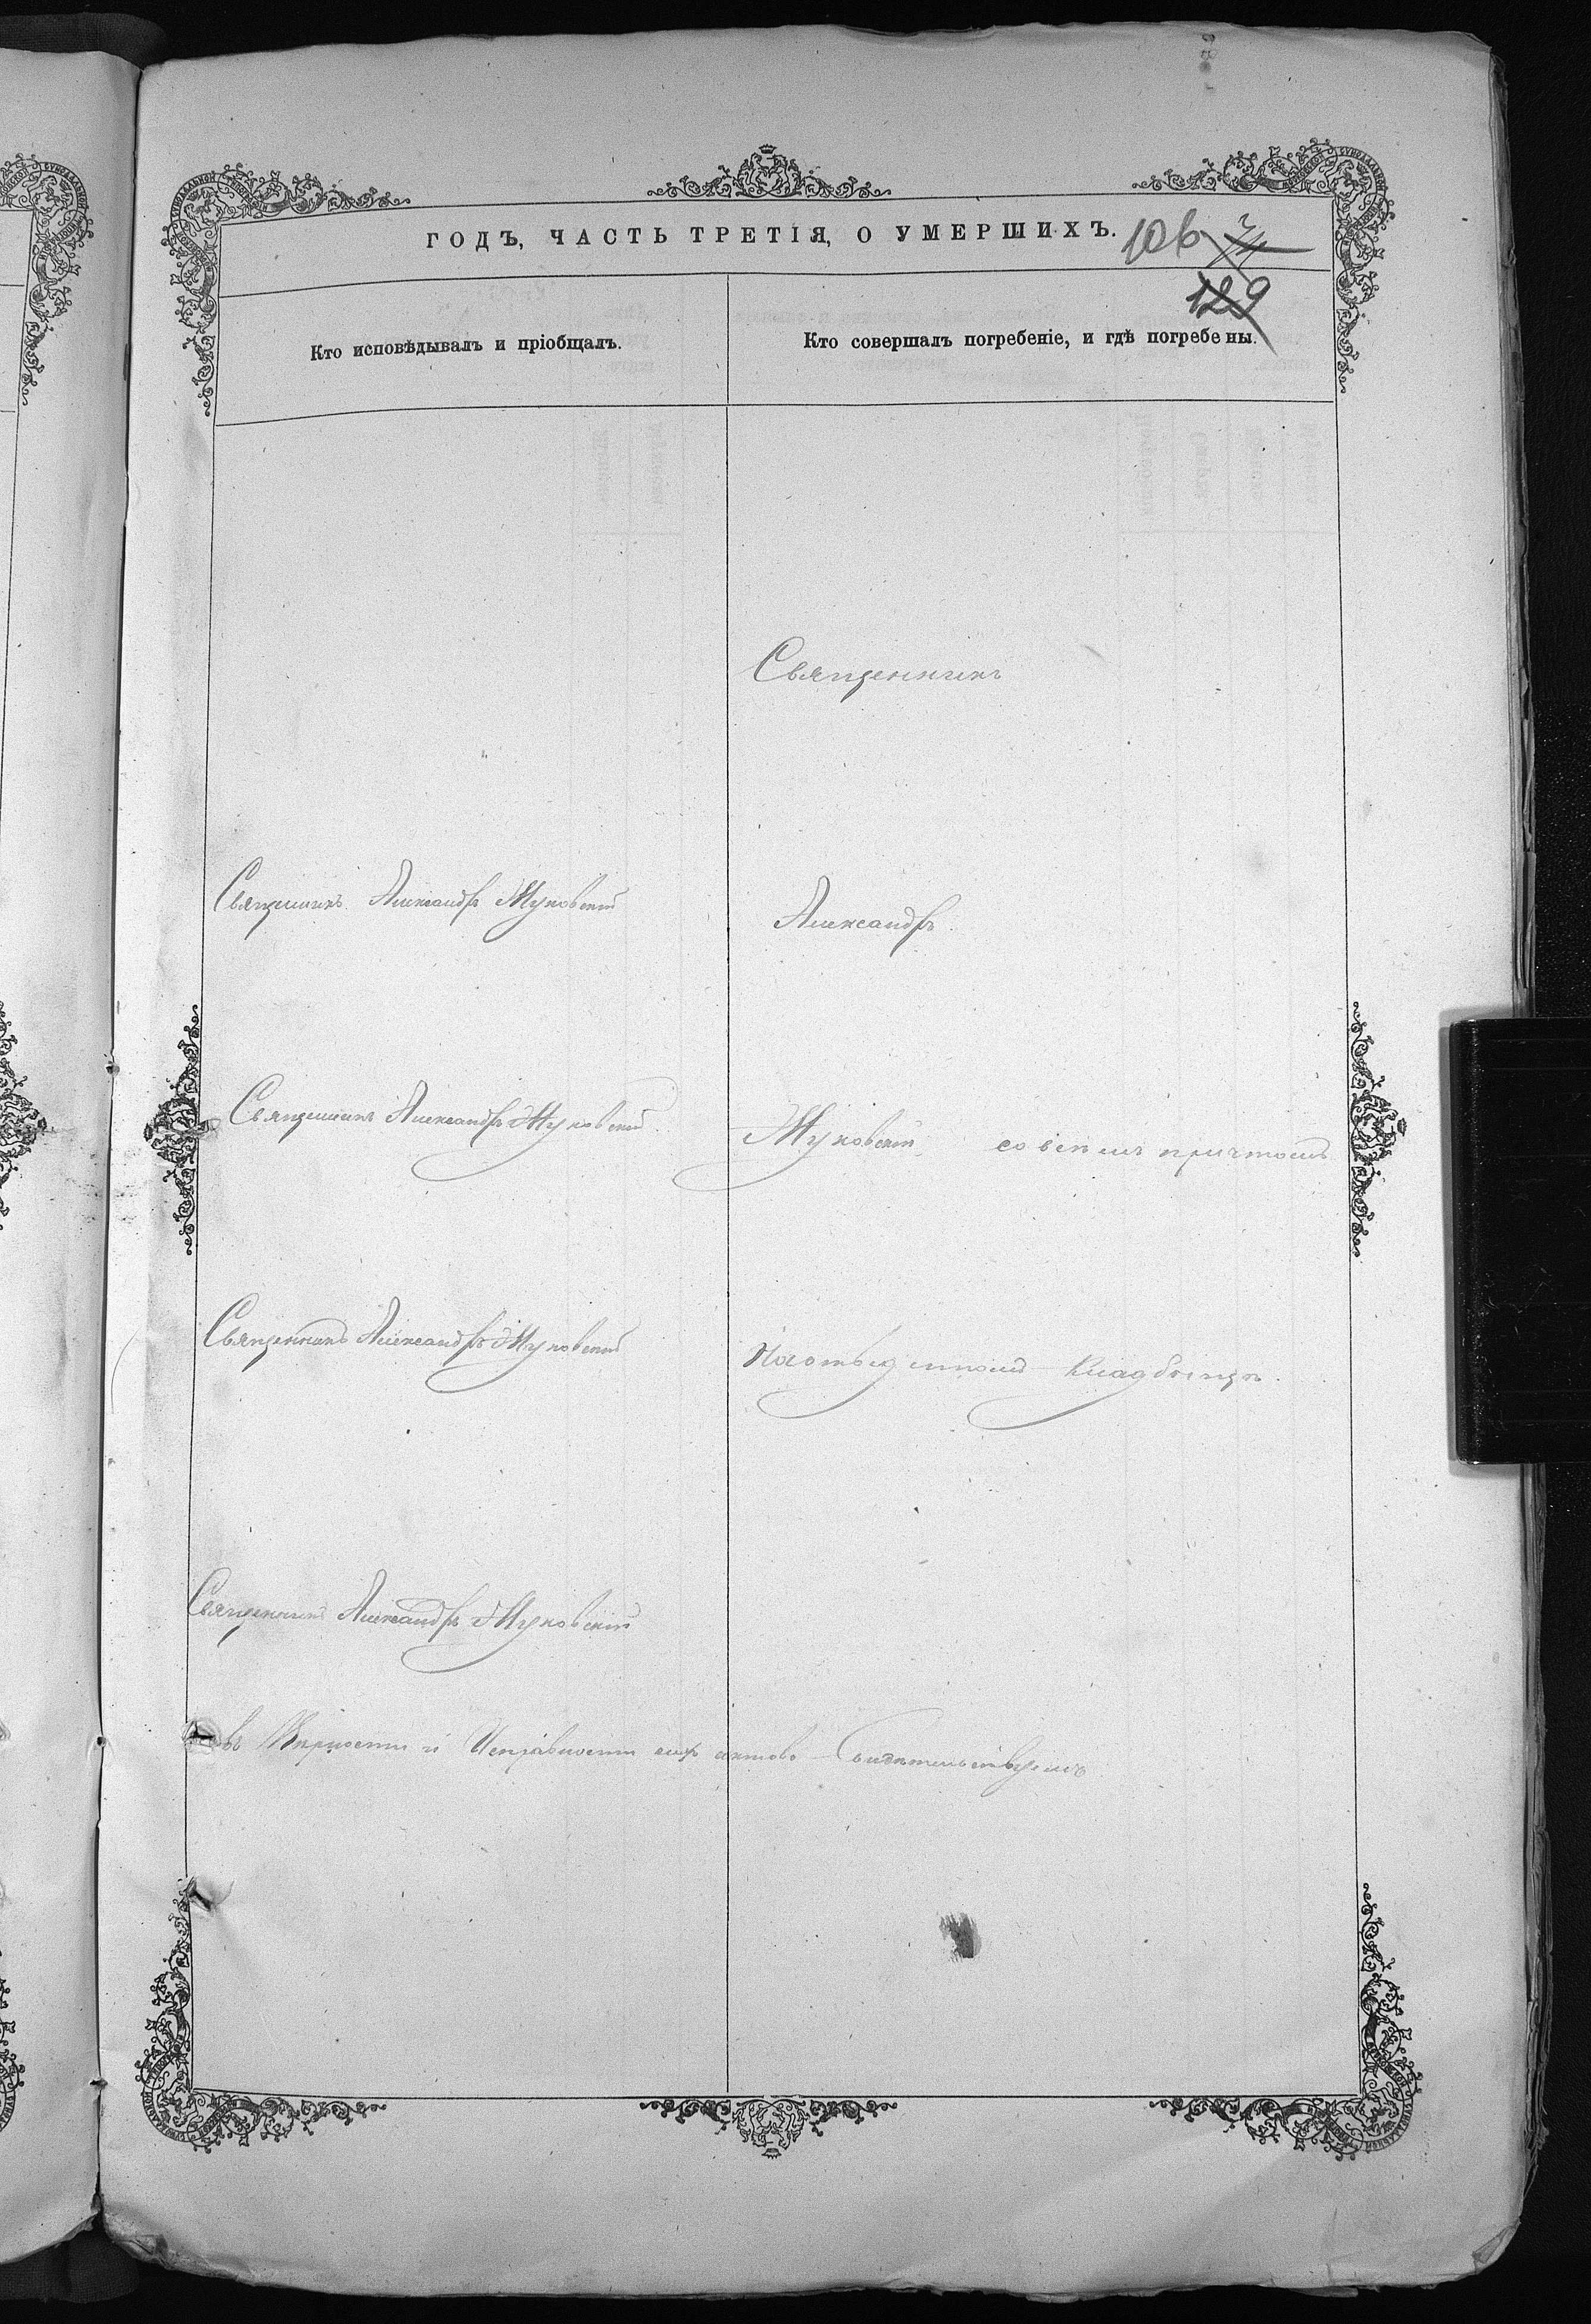 ГОДЪ, ЧАСТЬ ТРЕТІЯ, О УМЕРШИХЪ.
106
129
Кто исповѣдывалъ и пріобщалъ.
Кто совершалъ погребеніе, и гдѣ погребены.
Священникъ
Священникъ Александръ Жуковскій
Александръ
Священникъ Александръ Жуковскій
Жуковскій со всѣмъ причтомъ
Священникъ Александръ Жуковскій
Кладбищѣ.
Священникъ Александръ Жуковскій
въ Вѣрности и Исправности сихъ актовъ Свидѣтельствуемъ